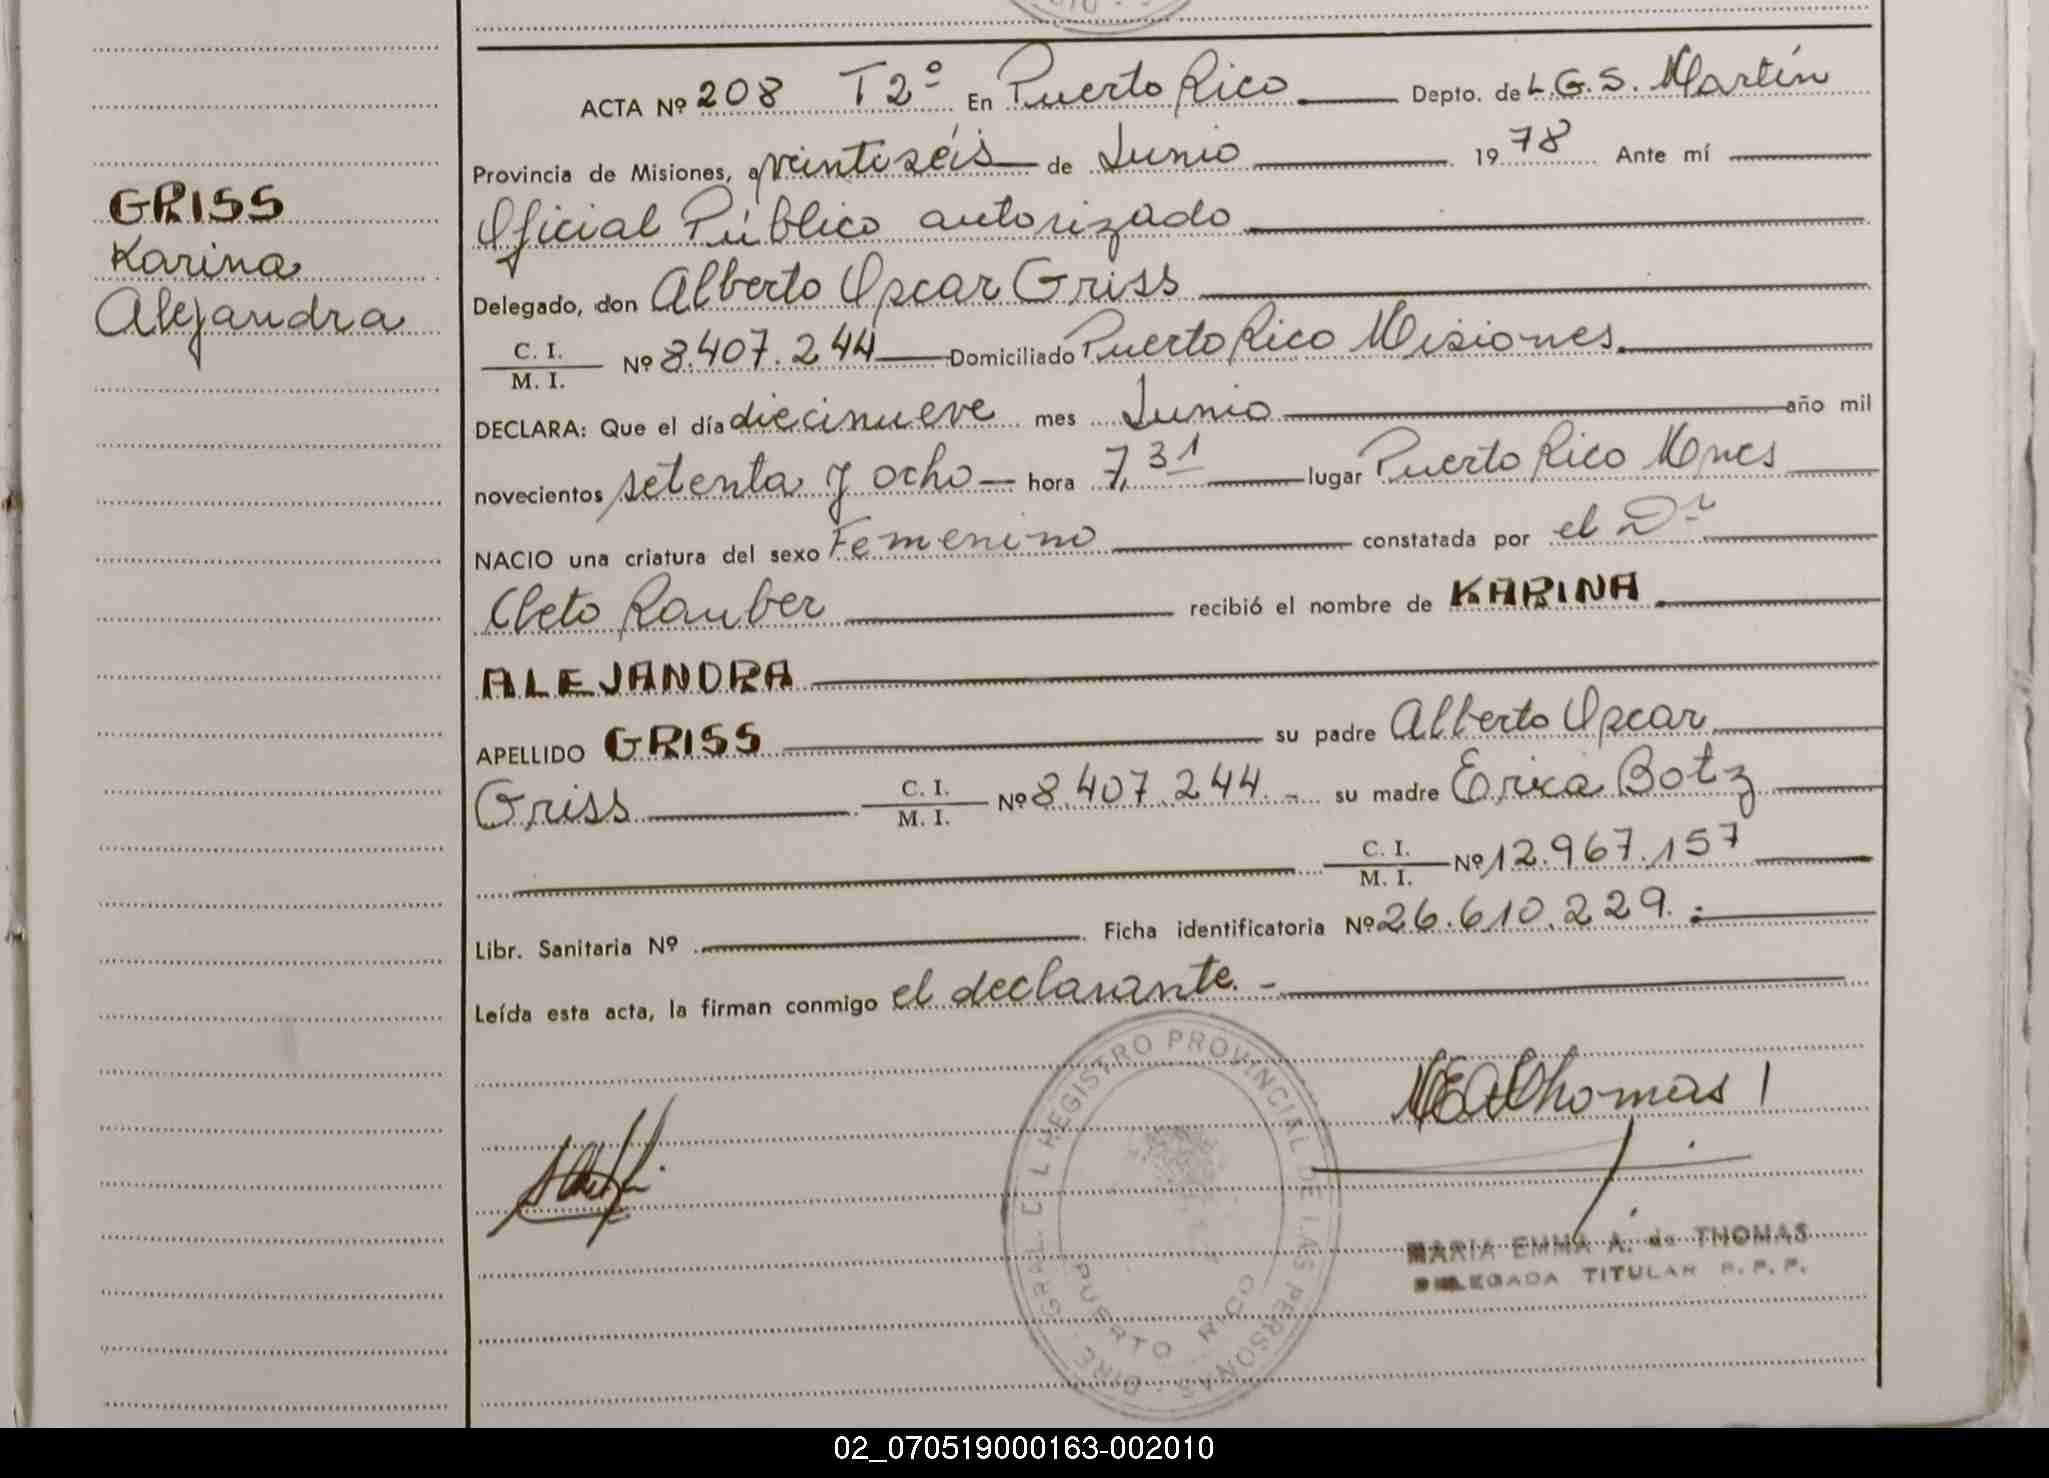 GRISS
Karina
Alejandra
ACTA Nº 208 T2º En Puerto Rico Depto. de L.G.S. Martín
Provincia de Misiones, a veintiséis de Junio 1978 Ante mí
Oficial Público autorizado
Delegado, don Alberto Oscar Griss
C. I.
M. I. Nº 8.407.244 Domiciliado Puerto Rico Misiones.
DECLARA: Que el día diecinueve mes Junio año mil
novecientos setenta y ocho hora 7,31 lugar Puerto Rico Mnes
NACIO una criatura del sexo Femenino constatada por el Dr
Cleto Rauber recibió el nombre de KARINA
ALEJANDRA
APELLIDO GRISS su padre Alberto Oscar
Griss C. I.
M. I. Nº 8.407.244.- su madre Erica Botz
C. I.
M. I. Nº 12.967.157
Libr. Sanitaria Nº Ficha identificatoria Nº 26.610.229.-
Leída esta acta, la firman conmigo el declarante.-
REGISTRO PROVINCIAL DE LAS PERSONAS
PUERTO RICO
MARIA EMMA A. de THOMAS
DELEGADA TITULAR R.P.P.
02_070519000163-002010